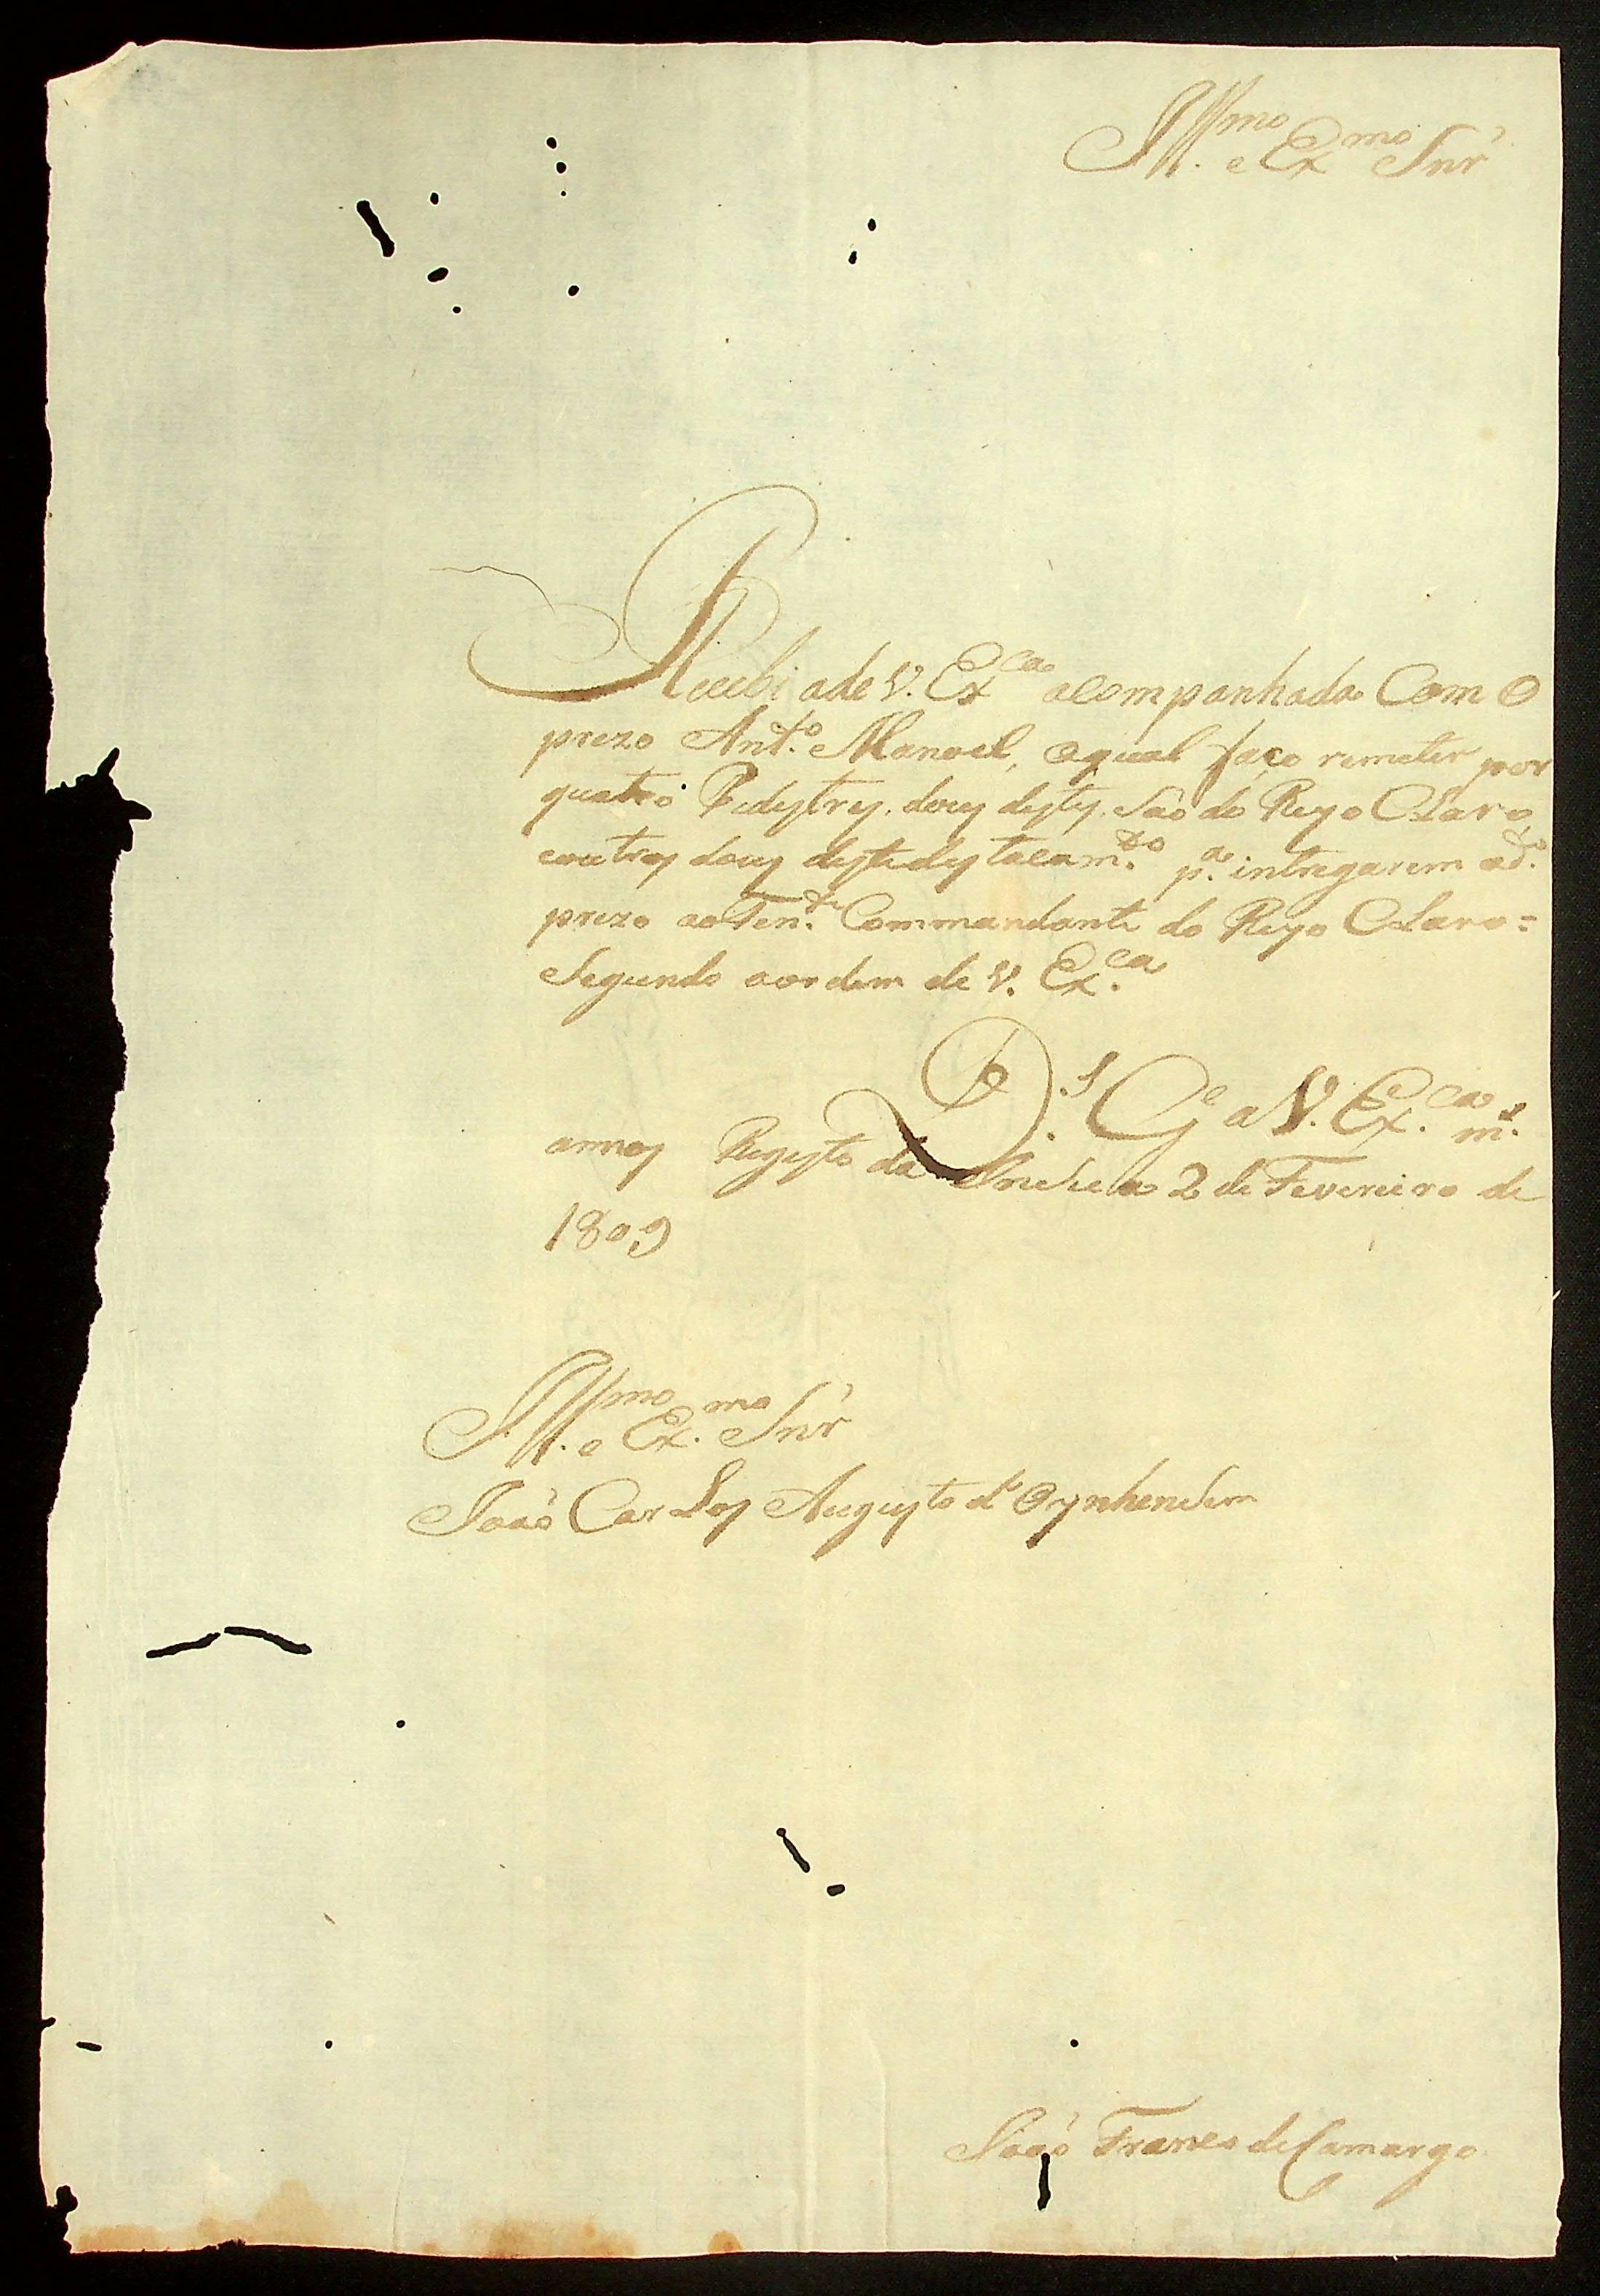 Ill.mo e Exmo Snr'
Recebi a de V. Exca acompanhada Com O
prezo Ant.o Manoel, oqual faço remeter por
quatro Pedestres. dous destes. São do Reyo CLaro,
eoutros dous deste destacam.to p.a intregarem od.o
prezo ao Ten.te Commandante do Reyo CLaro =
Segundo aordem de V. Ex.ca
D.s G.e a V. Ex.ca m.s
annos Regysto da 2 de Fevereiro de
1809
Ill.mo e Ex.mo Snr'
João CarLos Augusto d'Oynhensem
João Franco de Camargo